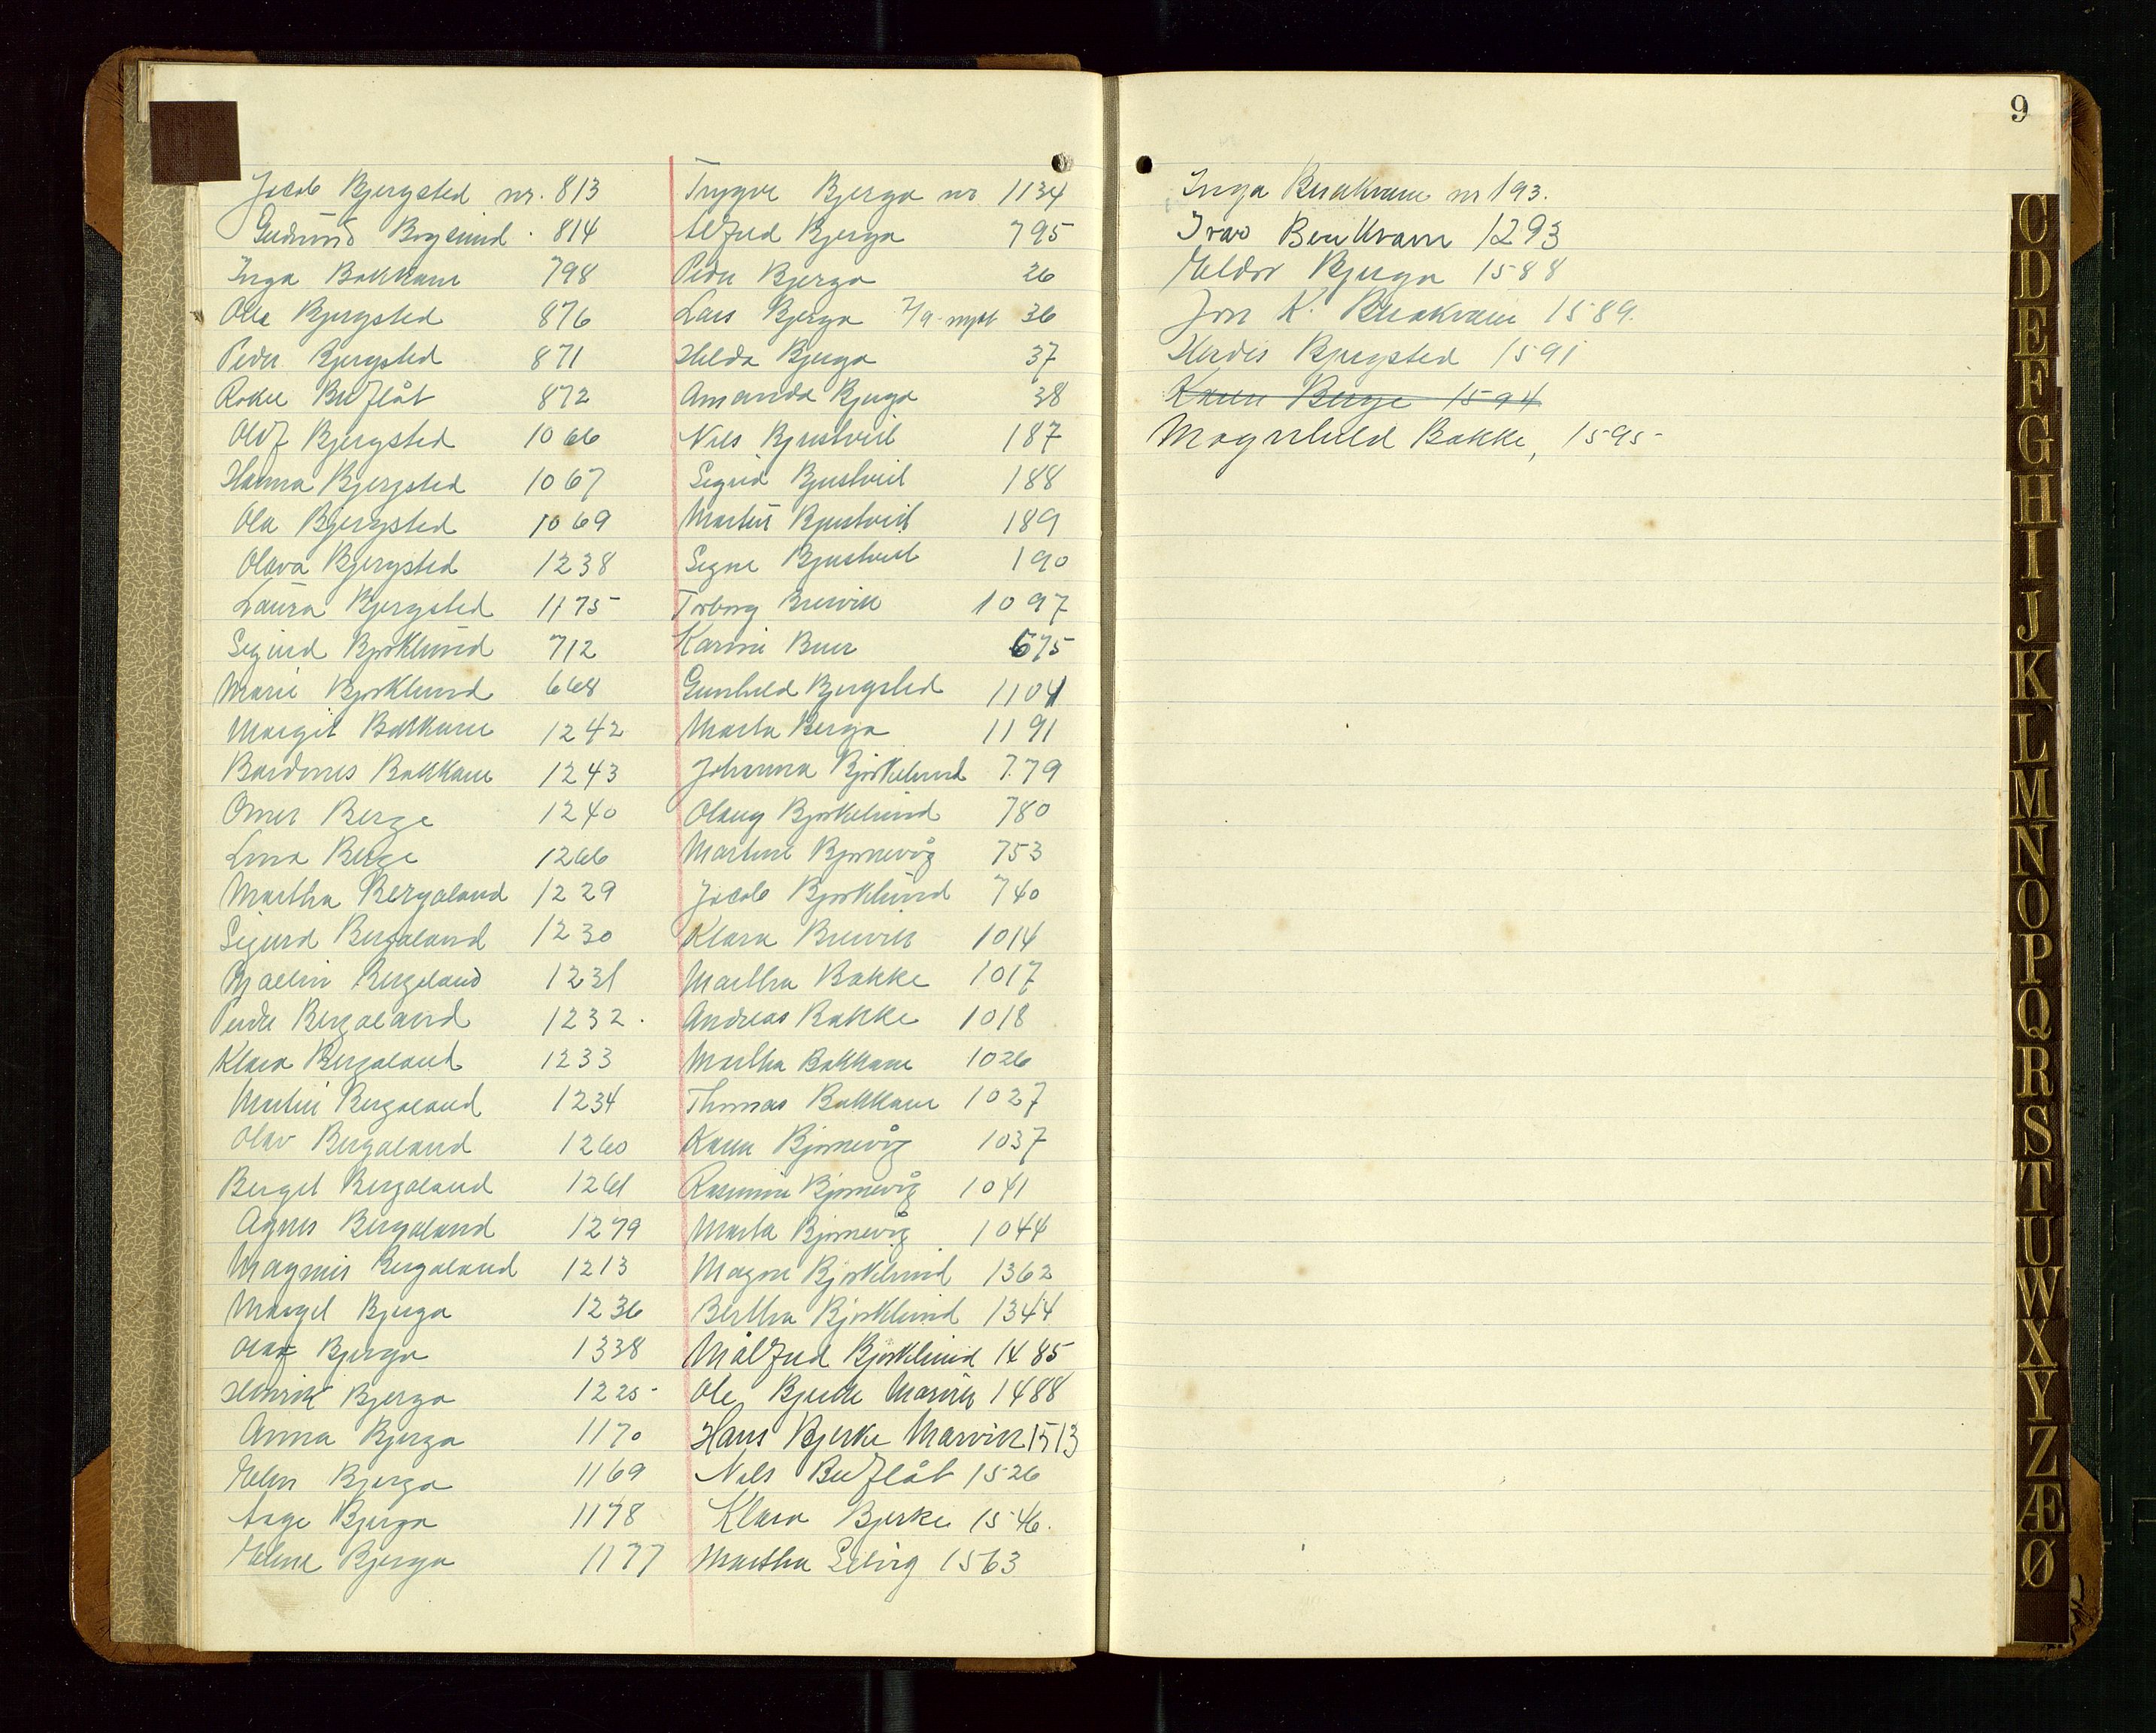 Jacob Bjergsted nr. 813
Gudrund Bogsund . 814
Inga Bakkane 798
Olla Bjergsted 876
Peder Bjergsted 871
Buflåt 872
Olof Bjergsted 1066
Hanna Bjergsted 1067
Ola Bjergsted 1069
Olava Bjergsted 1238
Laura Bjergsted 1175
Sigurd Bjørklund 712
Marie Bjørklund 668
Margit Bakkane 1242
Bardines Bakkane 1243
Omer Berge 1240
Lina Berge 1266
Martha Bergaland 1229
Sigurd Bergaland 1230
Bergaland 1231
Peder Bergaland 1232.
Klara Bergaland 1233
Martin Bergaland 1234
Olav Bergaland 1260
Berget Bergaland 1261
Agnes Bergaland 1279
Magnus Bergaland 1213
Margit Bjerga 1236
Olaf Bjerga 1338
Henrik Bjerga 1225
Anna Bjerga 1170
Elen Bjerga 1169
Aage Bjerga 1178
Eline Bjerga 1177
Trygve Bjerga nr 1134
Alfred Bjerga 795
Peder Bjerga 26
Lars Bjerga 7/9 - nytt 36
Hilda Bjerga 37
Amanda Bjerga 38
Nils Bjustveit 187
Sigrid Bjustveit 188
Martin Bjustveit 189
Signe Bjustveit 190
Torborg Breivik 1097
Karine Buer 675
Gunhild Bjergsted 1104
Marta Berga 1191
Johanna Bjørkelund 779
Olaug Bjørkelund 780
Martine Bjørnevåg 753
Jacob Bjørklund 740
Klara Breivik 1014
Martha Bakke 1017
Andreas Bakke 1018
Martha Bakkane 1026
Thomas Bakkane 1027
Karen Bjørnevåg 1037
Rasmine Bjørnevåg 1041
Marta Bjørnevåg 1044
Magne Bjørklund 1362
Bertha Bjørklund 1344
Målfrid Bjørklund 1485
Ole Bjerke Marvik 1488
Hans Bjerke Marvik 1513
Nils Buflåt 1526
Klara Bjerke 1546.
Martha 1563
9
Inga Buakvam nr 193.
Ivar Buakvam 1293
Eldor Bjerga 1588
Jon K. Buakvam 1589.
Herdis Bjergsted 1591
Karen Berge 1594
Magnhild Bakke, 1595
C
D
E
F
G
H
I
J
K
L
M
N
O
P
Q
R
S
T
U
W
X
Y
Z
Æ
Ø